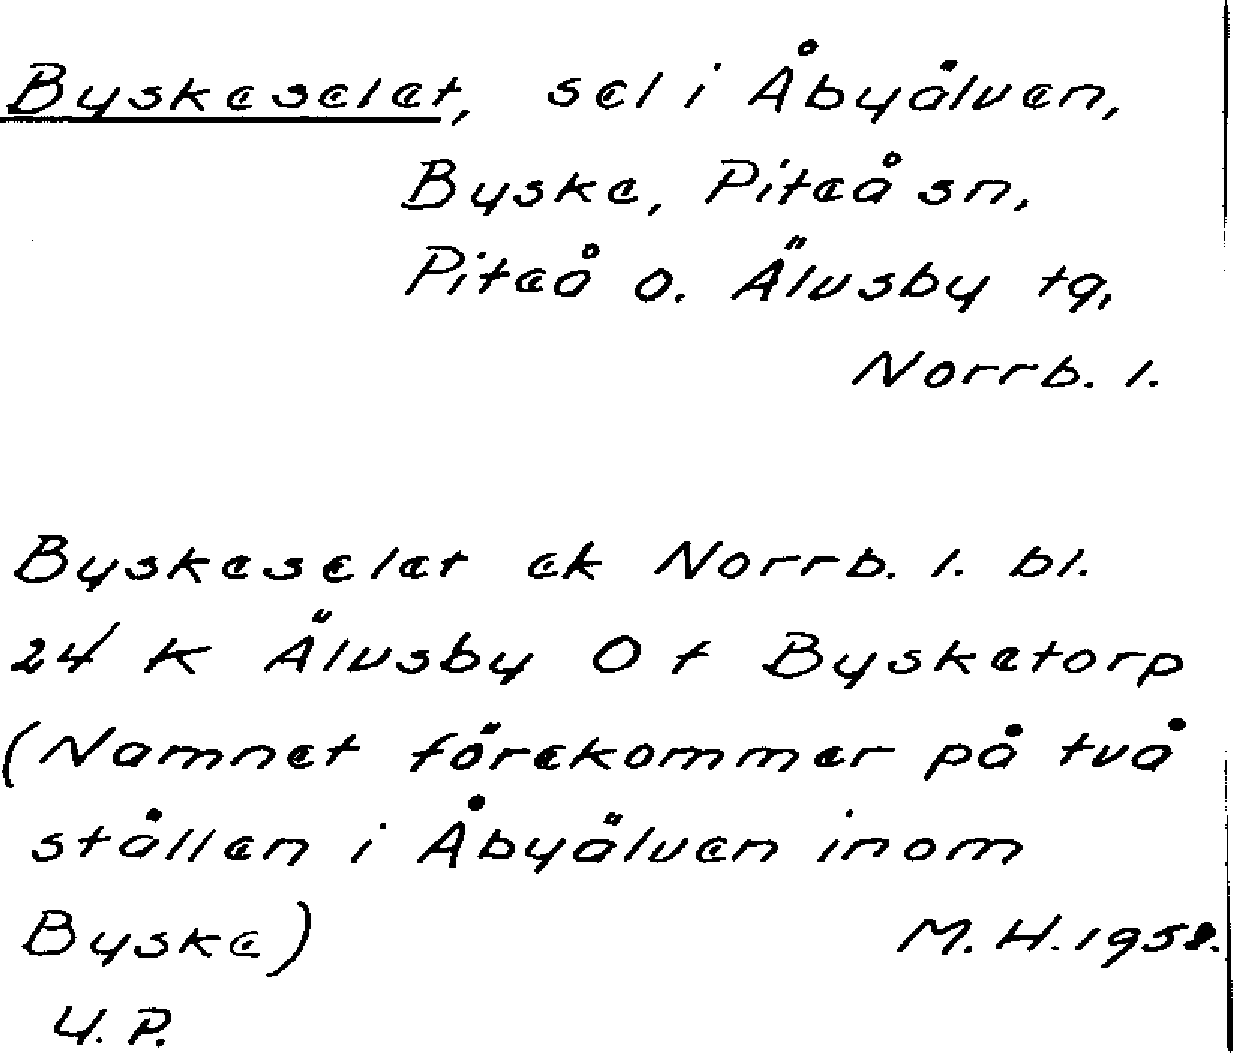 Byskeselet, sel i Åbyälven,
Byske, Piteå sn,
Piteå o. Älvsby tg,
Norrb. l.
Byskeselet ek Norrb. l. bl.
24 K Älvsby O f Bysketorp
(Namnet förekommer på två
ställen i Åbyälven inom
Byske)
M. H. 1958.
U. P.